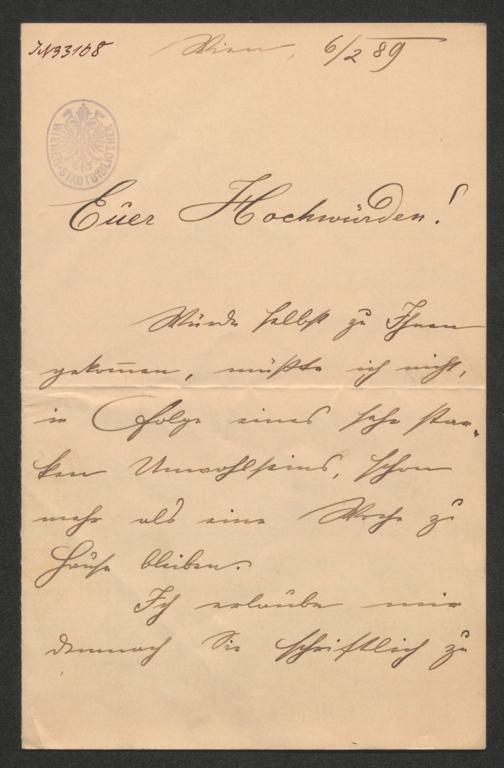 JN33108
Wien, 6/2 89
WIENER-STADTBIBLIOTHEK
Euer Hochwürden!
Würde selbst zu Ihnen
gekommen, müßte ich nicht,
in Folge eines sehr star-
ken Unwohlseins, schon
mehr als eine Woche zu
Hause bleiben.
Ich erlaube mir
demnach Sie schriftlich zu